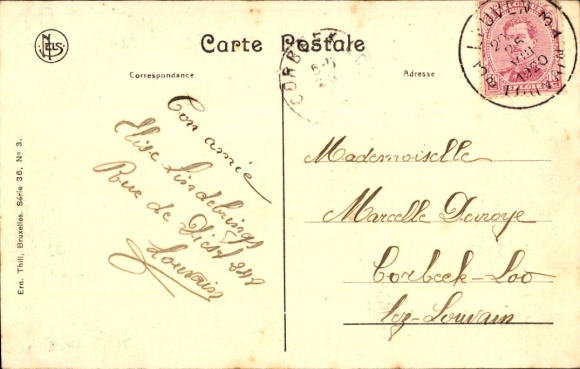 NELS
Carte Postale
Correspondance
Adresse
LEUVEN
LOUVAIN
25
VIII
1920
CORB
Ton amie
Elise
Rue de Diest 248
Louvain
Mademoiselle
Marcelle Devroye
Corbeek-Loo
lez-Louvain
Ern. Thill, Bruxelles. Série 36, No 3.